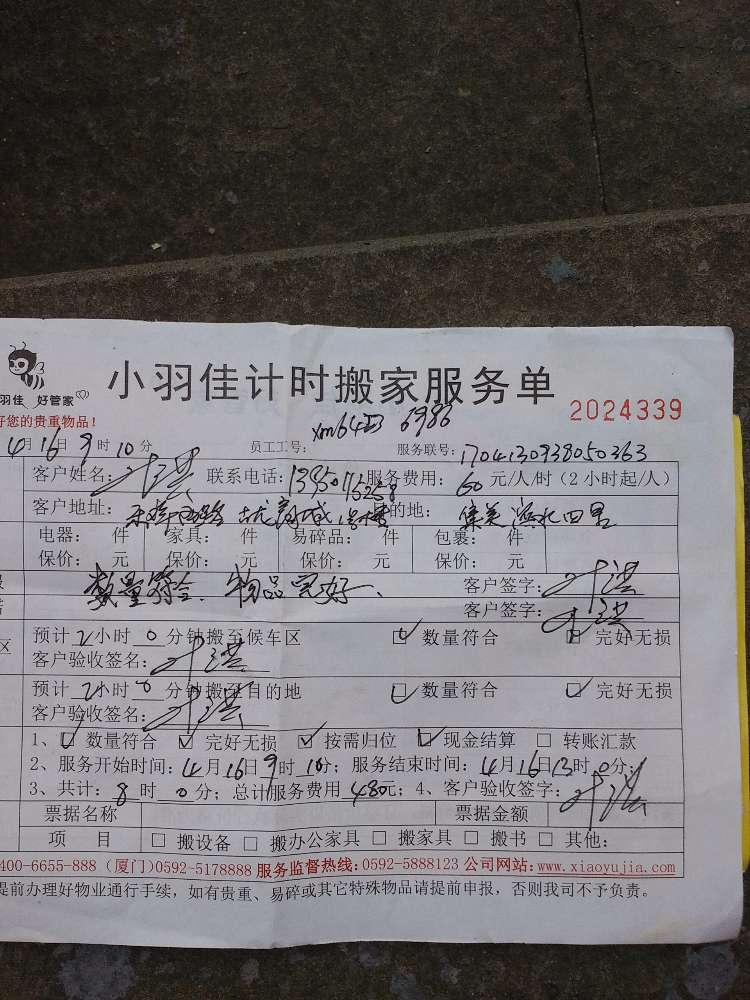 羽佳 好管家
小羽佳计时搬家服务单
2024339
好您的贵重物品!
4月16日9时10分 员工工号: 6986 服务联号: 1704130938050363
客户姓名: 叶洪 联系电话: 服务费用: 60元/人/时(2小时起/人)
客户地址: 的地: 集美滨水四里
电器: 件 家具: 件 易碎品: 件 包裹: 件
保价: 元 保价: 元 保价: 元 保价: 元
数量符合、物品完好、 客户签字: 叶洪
客户签字: 叶洪
预计2小时0分钟搬至候车区 数量符合 完好无损
客户验收签名: 叶洪
预计2小时0分钟搬至目的地 数量符合 完好无损
客户验收签名: 叶洪
1、 数量符合 完好无损 按需归位 现金结算 转账汇款
2、服务开始时间: 4月16日9时10分; 服务结束时间: 4月16日13时0分;
3、共计: 8时0分; 总计服务费用480元; 4、客户验收签字: 叶洪
票据名称 票据金额
项 目 搬设备 搬办公家具 搬家具 搬书 其他:
400-6655-888 (厦门)0592-5178888 服务监督热线:0592-5888123 公司网站:www.xiaoyujia.com
提前办理好物业通行手续,如有贵重、易碎或其它特殊物品请提前申报,否则我司不予负责。